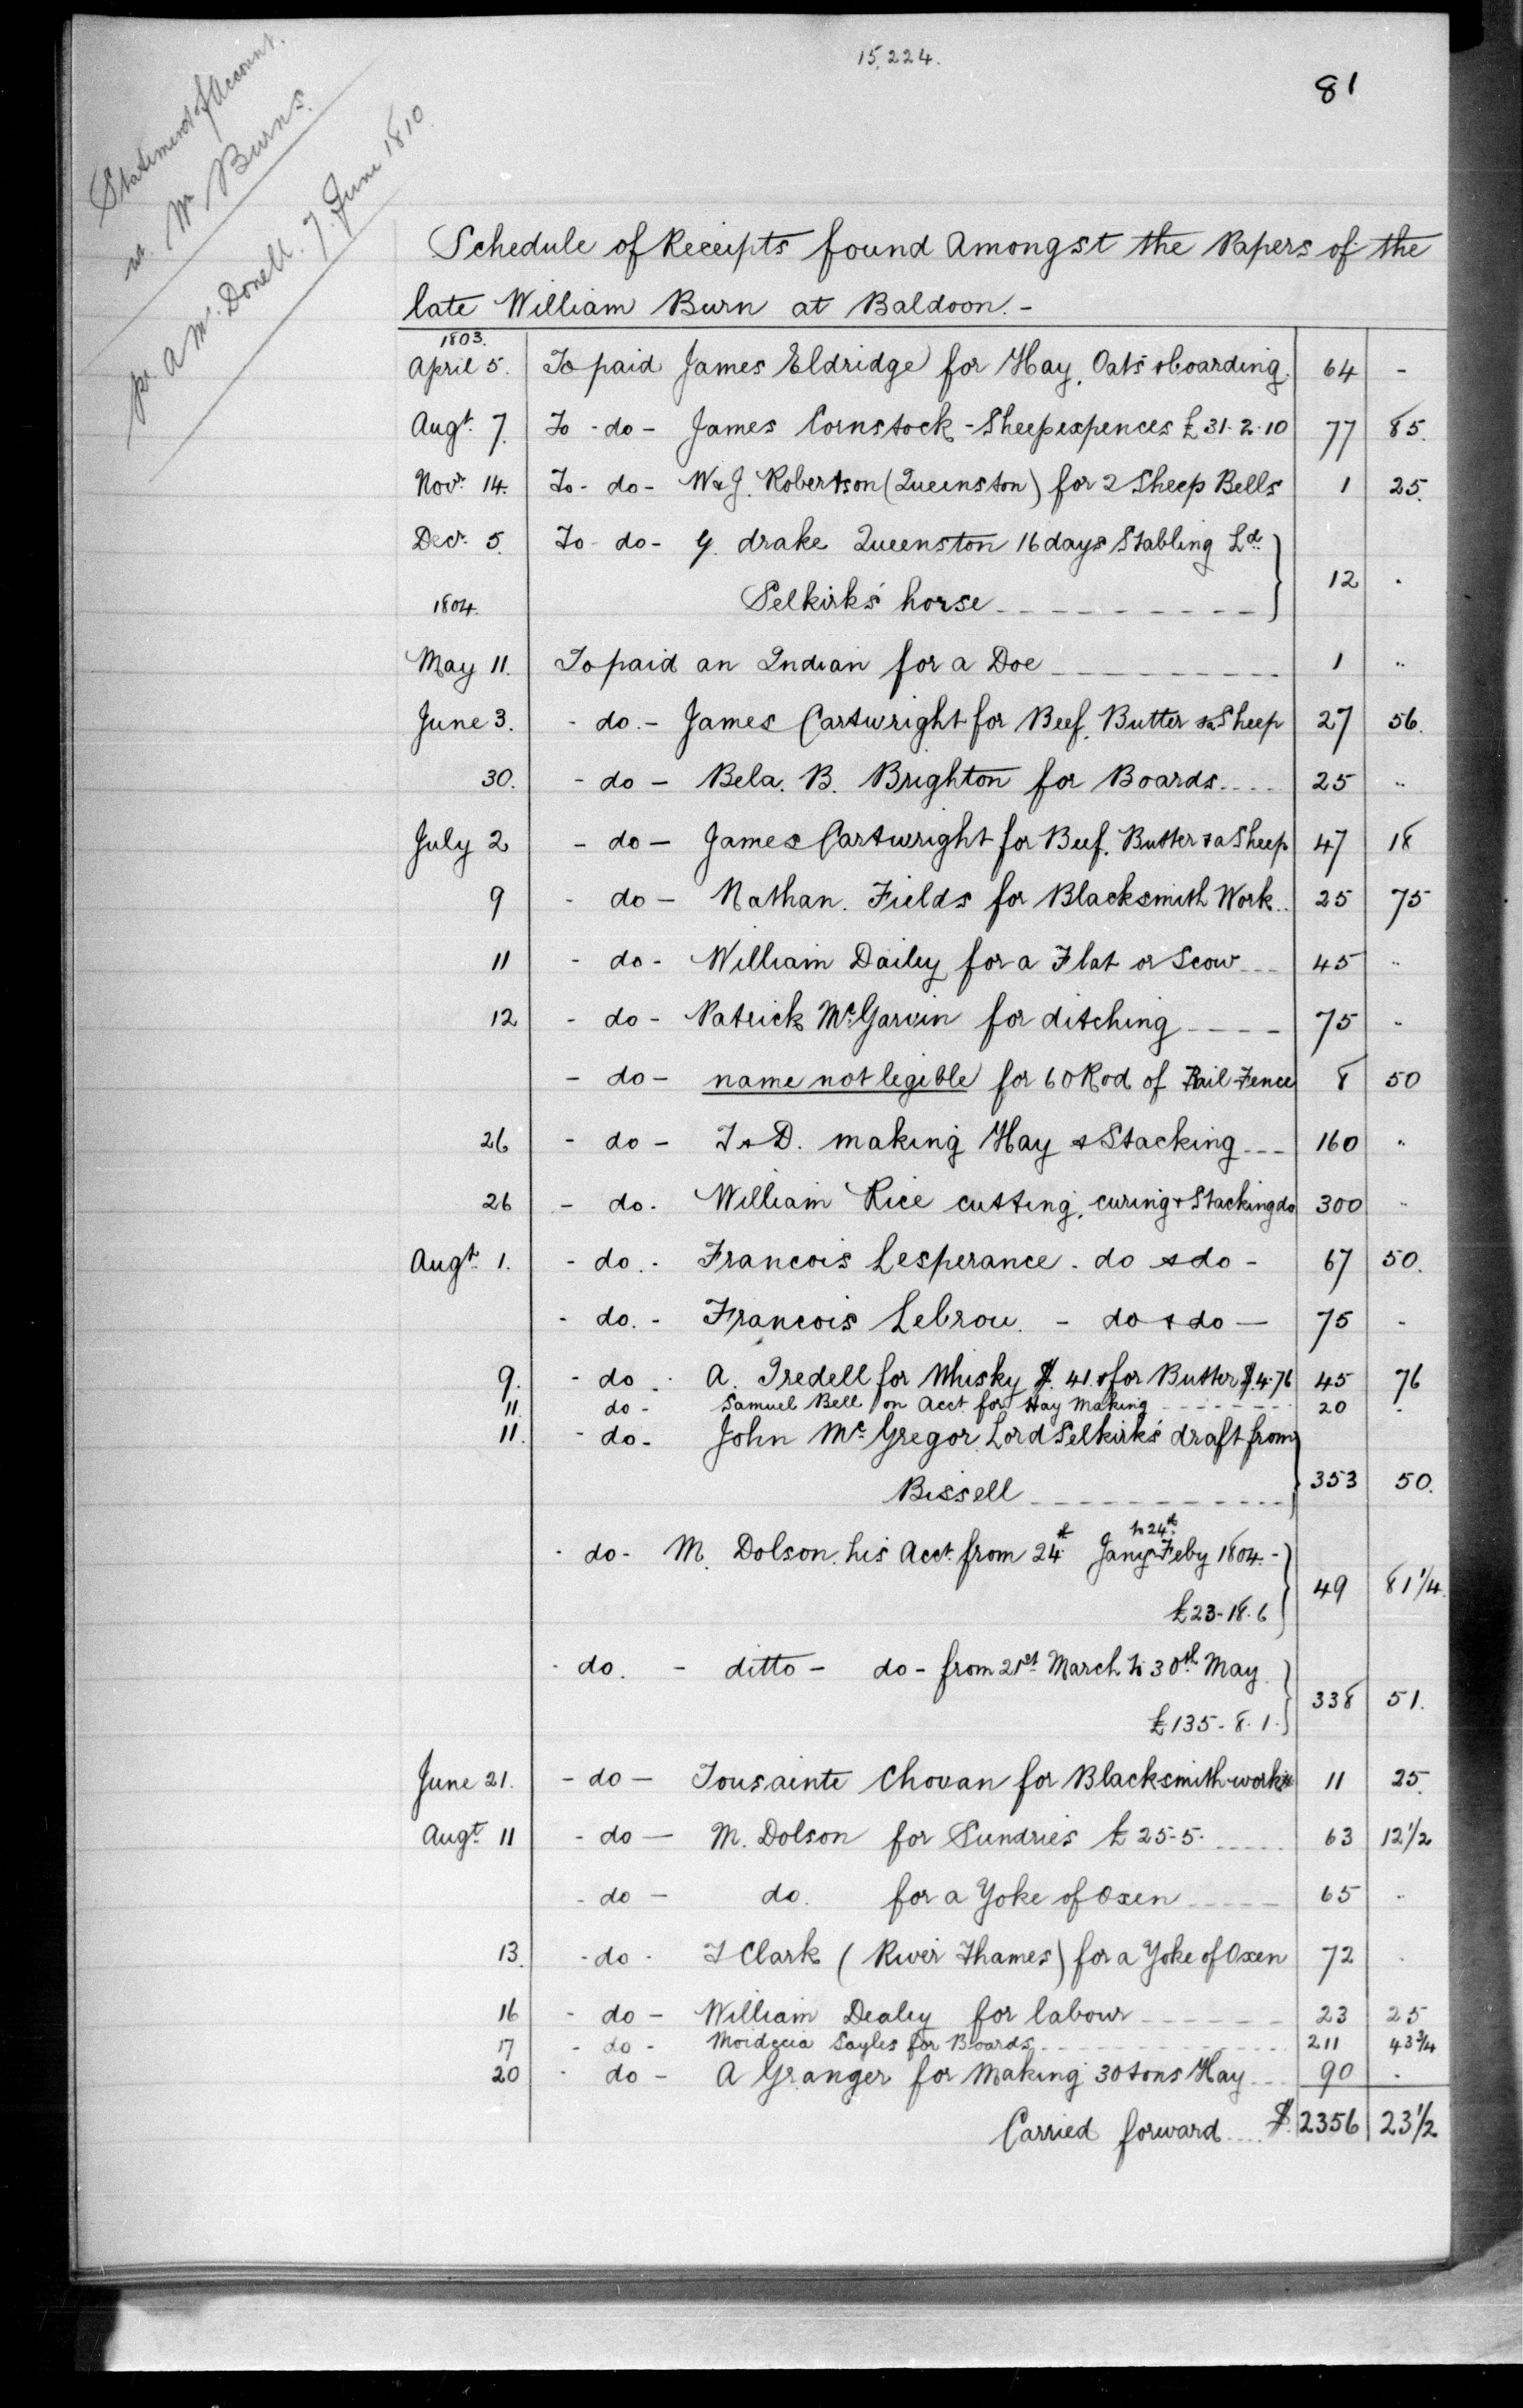 15,224.
81
Statement of Account.
re Mr Burns.
pr. A McDonell. 7. June 1810
Schedule of Receipts found Amongst the Papers of the
late William Burn at Baldoon.-
1803.
April 5. To paid James Eldridge for Hay, Oats & boarding. 64 -
Augt. 7. To - do - James Cornstock - Sheep expences £31.2.10 77 85.
Novr. 14. To - do - W & J. Robertson (Queenston) for 2 Sheep Bells 1 25.
Decr. 5. To - do - G. drake Queenston 16 days Stabling Ld.
Selkirks' horse 12 .
1804.
May 11. To paid an Indian for a Doe 1 "
June 3. - do. - James Cartwright for Beef, Butter & Sheep 27 56.
30. - do - Bela. B. Brighton for Boards 25 "
July 2 - do - James Cartwright for Beef, Butter & a Sheep 47 18
9 - do - Nathan. Fields for Blacksmith Work 25 75
11 - do - William Dailey for a Flat or Scow 45 "
12 - do - Patrick McGarvin for ditching 75 "
- do - name not legible for 60 Rod of Rail Fence 8 50
26 - do - I & D. making Hay & Stacking 160 "
26 - do. William Rice cutting, curing & Stacking do 300 "
Augt. 1. - do. - Francois Lesperance. do & do - 67 50.
- do. - Francois Lebrou. - do & do - 75 -
9. - do. A. Iredell for Whisky $. 41. & for Butter $.4.76 45 76
11 do - Samuel Bell on Acct. for Hay Making 20 -
11. - do. John Mc.Gregor Lord Selkirks' draft from
Bissell 353 50.
- do - M. Dolson. his Acct. from 24th Jany to 24th Feby 1804. -
£23-18.6 49 81 1/4.
- do. - ditto - do - from 21st March to 30th May
£135-8.1. 338 51.
June 21. - do - Tousainte Chovan for Blacksmith work 11 25.
Augt. 11 - do - M. Dolson for Sundries £25-5. 63 12 1/2
- do - do. for a Yoke of Oxen 65 "
13. - do - I Clark (River Thames) for a Yoke of Oxen 72 .
16 - do - William Dealey for labour 23 25
17 - do - Moidecia Sayles for Boards 211 43 3/4
20 - do - A Granger for Making 30 tons Hay 90 .
Carried forward $.2356 23 1/2